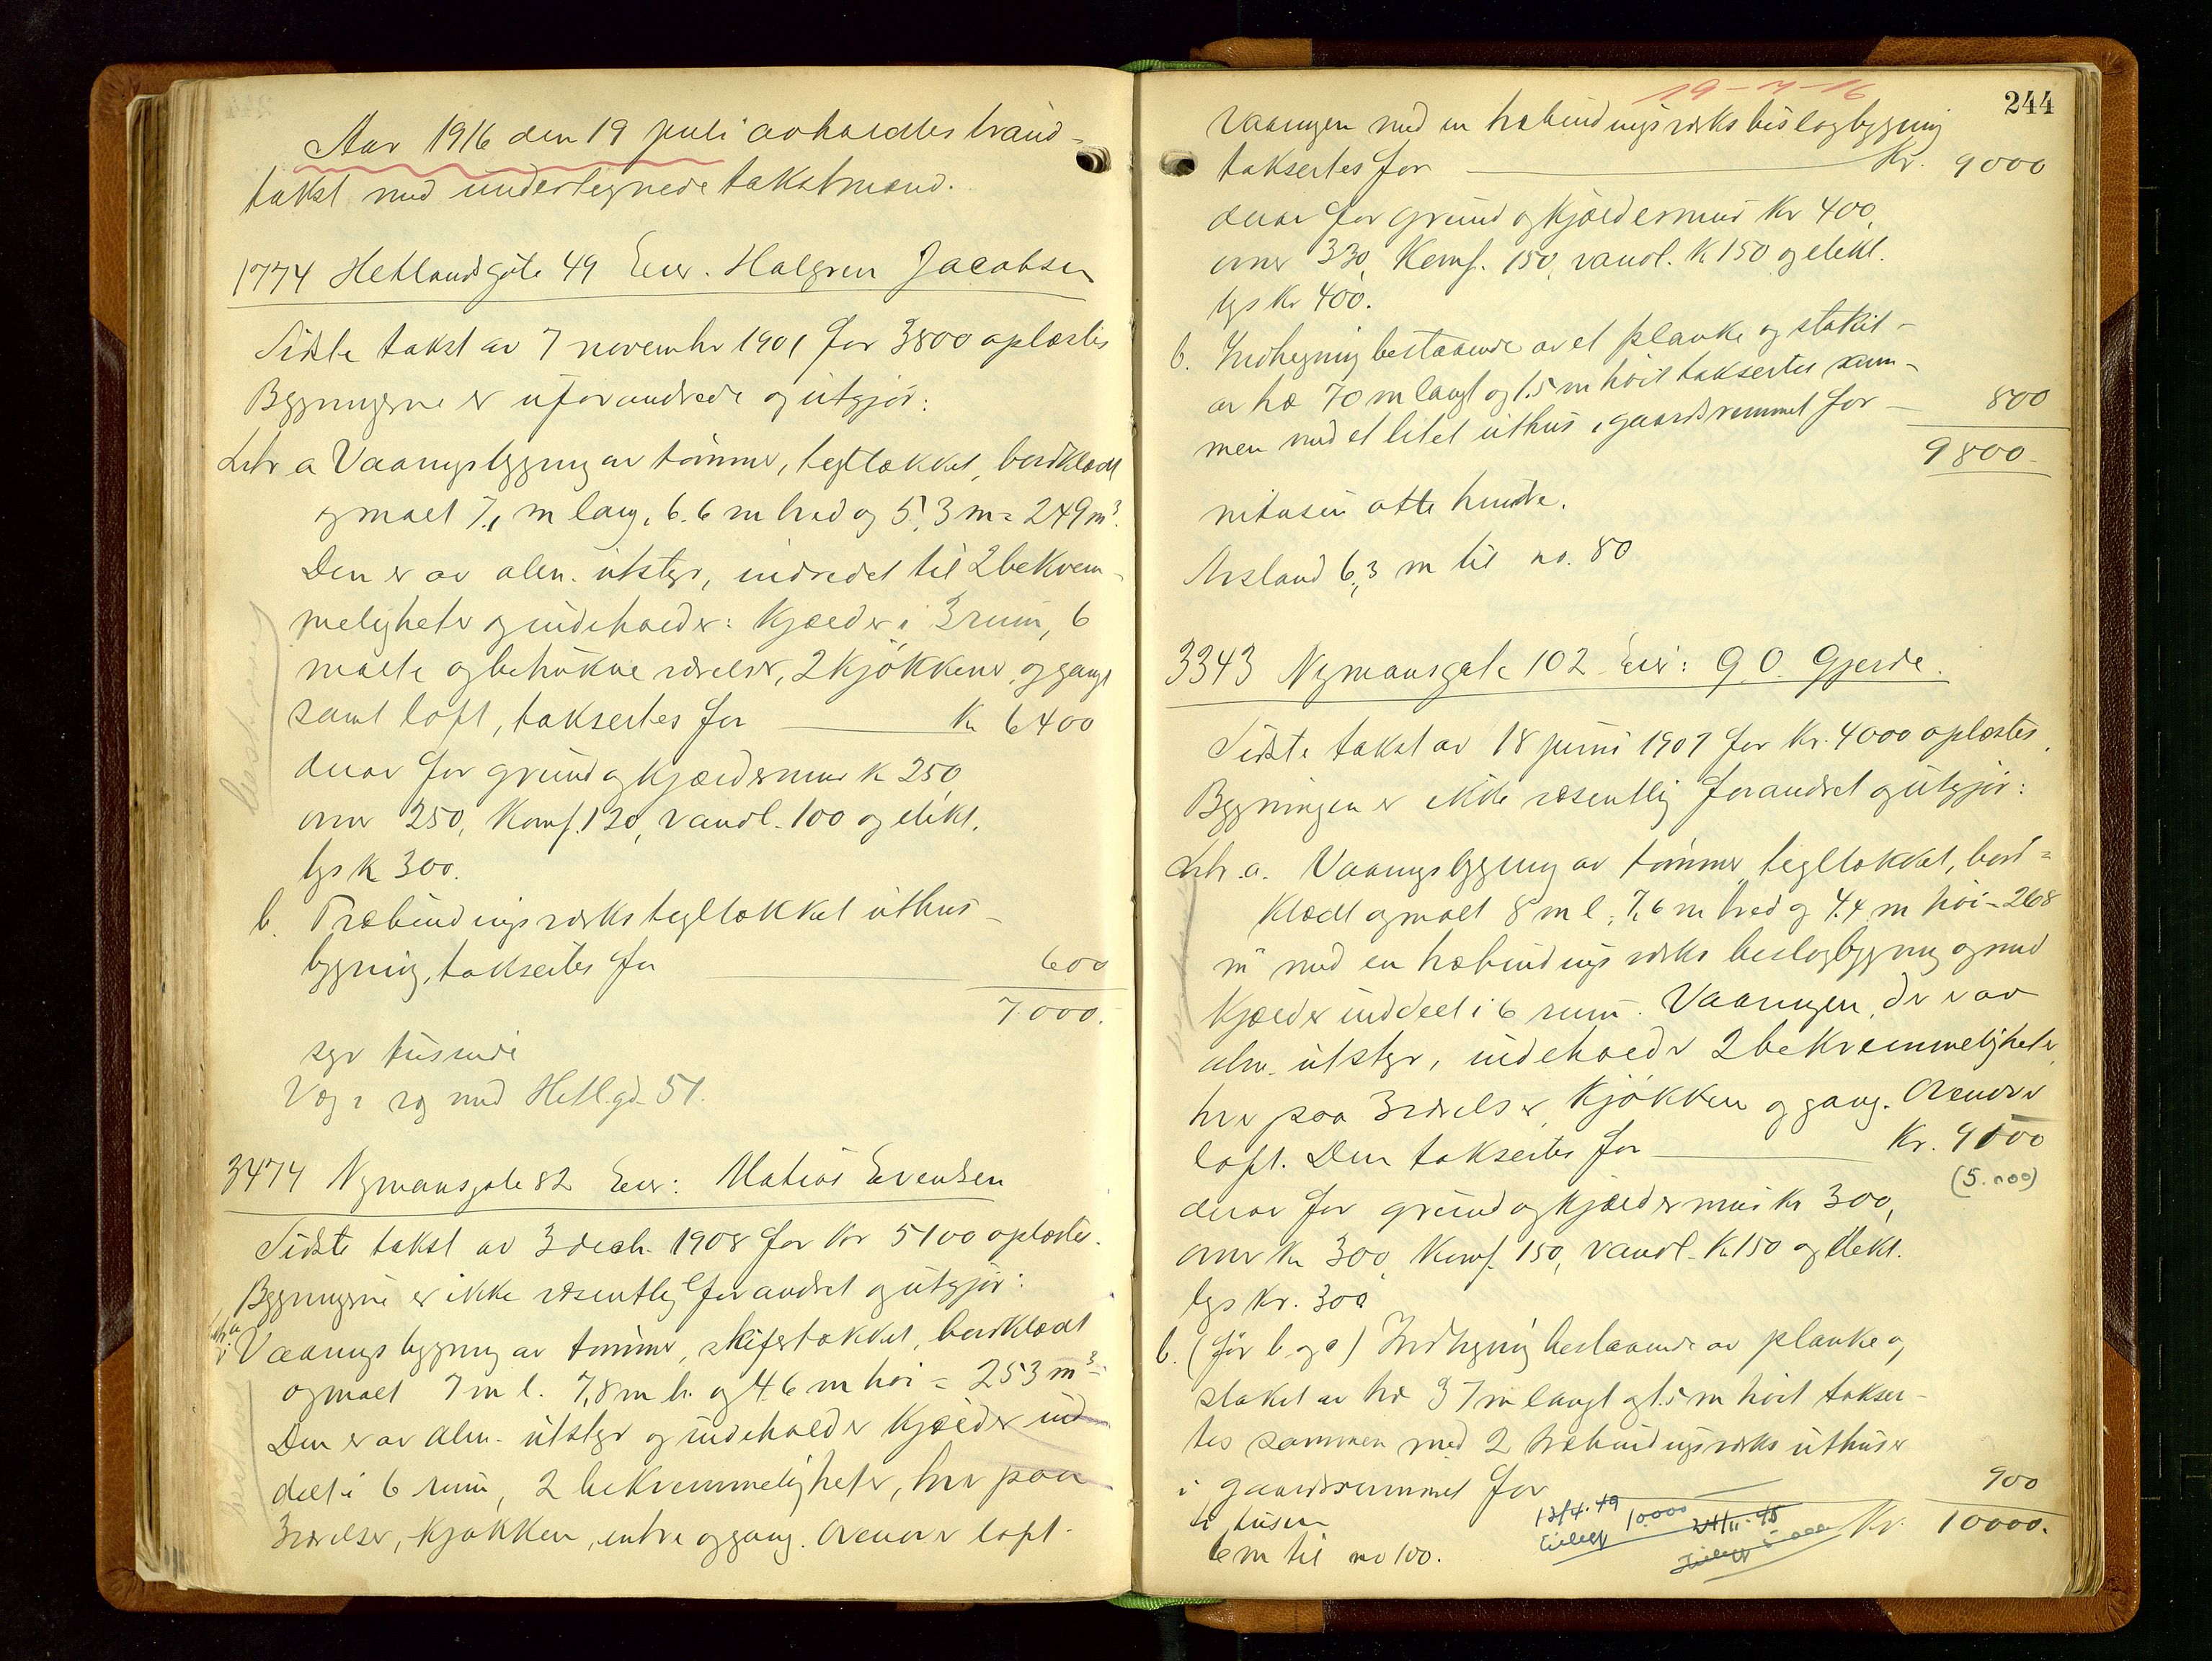 Aar 1916 den 19 juli avholdtes brand-
takst med undertegnede takstmænd.
1774 Hetlandsgate 49 Eier. Halgren Jacobsen
Sidste takst av 7 november 1901 for 3800 oplæstes
Bygningerne er uforandrede og utgjør:
Litr a Vaaningsbygning av tømmer, tegltækket, bordklædt
og malt 7,1 m lang, 6.6 m bred og 5,3 m = 249 m³.
Den er av alm. utstyr, indredet til 2 bekvem-
meligheter og indeholder: Kjælder i 3 rum, 6
malte og betrukne værelser, 2 kjøkkener, og gangs
samt loft, taksertes for Kr 6400
derav for grund og kjældermur Kr 250,
ovner 250, Komf. 120, vandl. 100 og elekt.
lys Kr 300.
b. Træbindingsverks tegltækket uthus-
bygning, taksertes for 600
7000.
syv tusinde
Væg i væg med Hetl.gd. 51.
3474 Nymansgate 82 Eier: Matias Evensen
Sidste takst av 3 decb. 1908 for Kr 5100 oplæstes.
Bygningerne er ikke væsentlig forandret og utgjør:
Vaaningsbygning av tømmer, skifertækket, bordklædt
og malt 7 m l. 7,8 m b. og 4.6 m høi = 253 m³
Den er av alm. utstyr og indeholder Kjælder ind
delt i 6 rum, 2 bekvemmeligheter, hver paa
3 værelser, kjøkken, entre og gang. Ovenover loft.
19-7-16
244
Vaaningen med en træbindingsverks bislagbygning
taksertes for Kr. 9000
derav for grund og kjældermur Kr 400,
ovner 330, Komf. 150, vandl. Kr 150 og elekt.
lys Kr 400.
b. Indhegning bestaaende av et planke og stakit-
av træ 70 m langt og 1.5 m høit taksertes sam-
men med et litet uthus i gaardsrummet for 800
9800
nitusen otte hundre.
Avstand 6,3 m til no. 80
3343 Nymansgate 102 Eier: G. O. Gjerde.
Sidste takst av 18 juni 1907 for Kr. 4000 oplæstes.
Bygningen er ikke væsentlig forandret og utgjør:
Litr. a. Vaaningsbygning av tømmer, tegltækket, bord-
klædt og malt 8 m l., 7,6 m bred og 4.4 m høi = 268
m³ med en træbindingsverks bislagbygning og med
Kjælder inddelt i 6 rum. Vaaningen, der er av
alm. utstyr, indeholder 2 bekvemmeligheter,
hver paa 3 værelser, kjøkken og gang. Ovenover
loft. Den taksertes for Kr. 9100
(5.000)
derav for grund og kjældermur Kr 300,
ovner Kr 300, Komf. 150, vandl. Kr 150 og elekt.
lys Kr. 300
b. (før b og c) Indhegning bestaaende av planke og
stakit av træ 37 m langt og 1.5 m høit takser-
tes sammen med 2 træbindingsverks uthuser
i gaardsrummet for 900
ti tusen Kr. 10000.
13/4. 49 10000
24/11. 45
6 m til no 100.